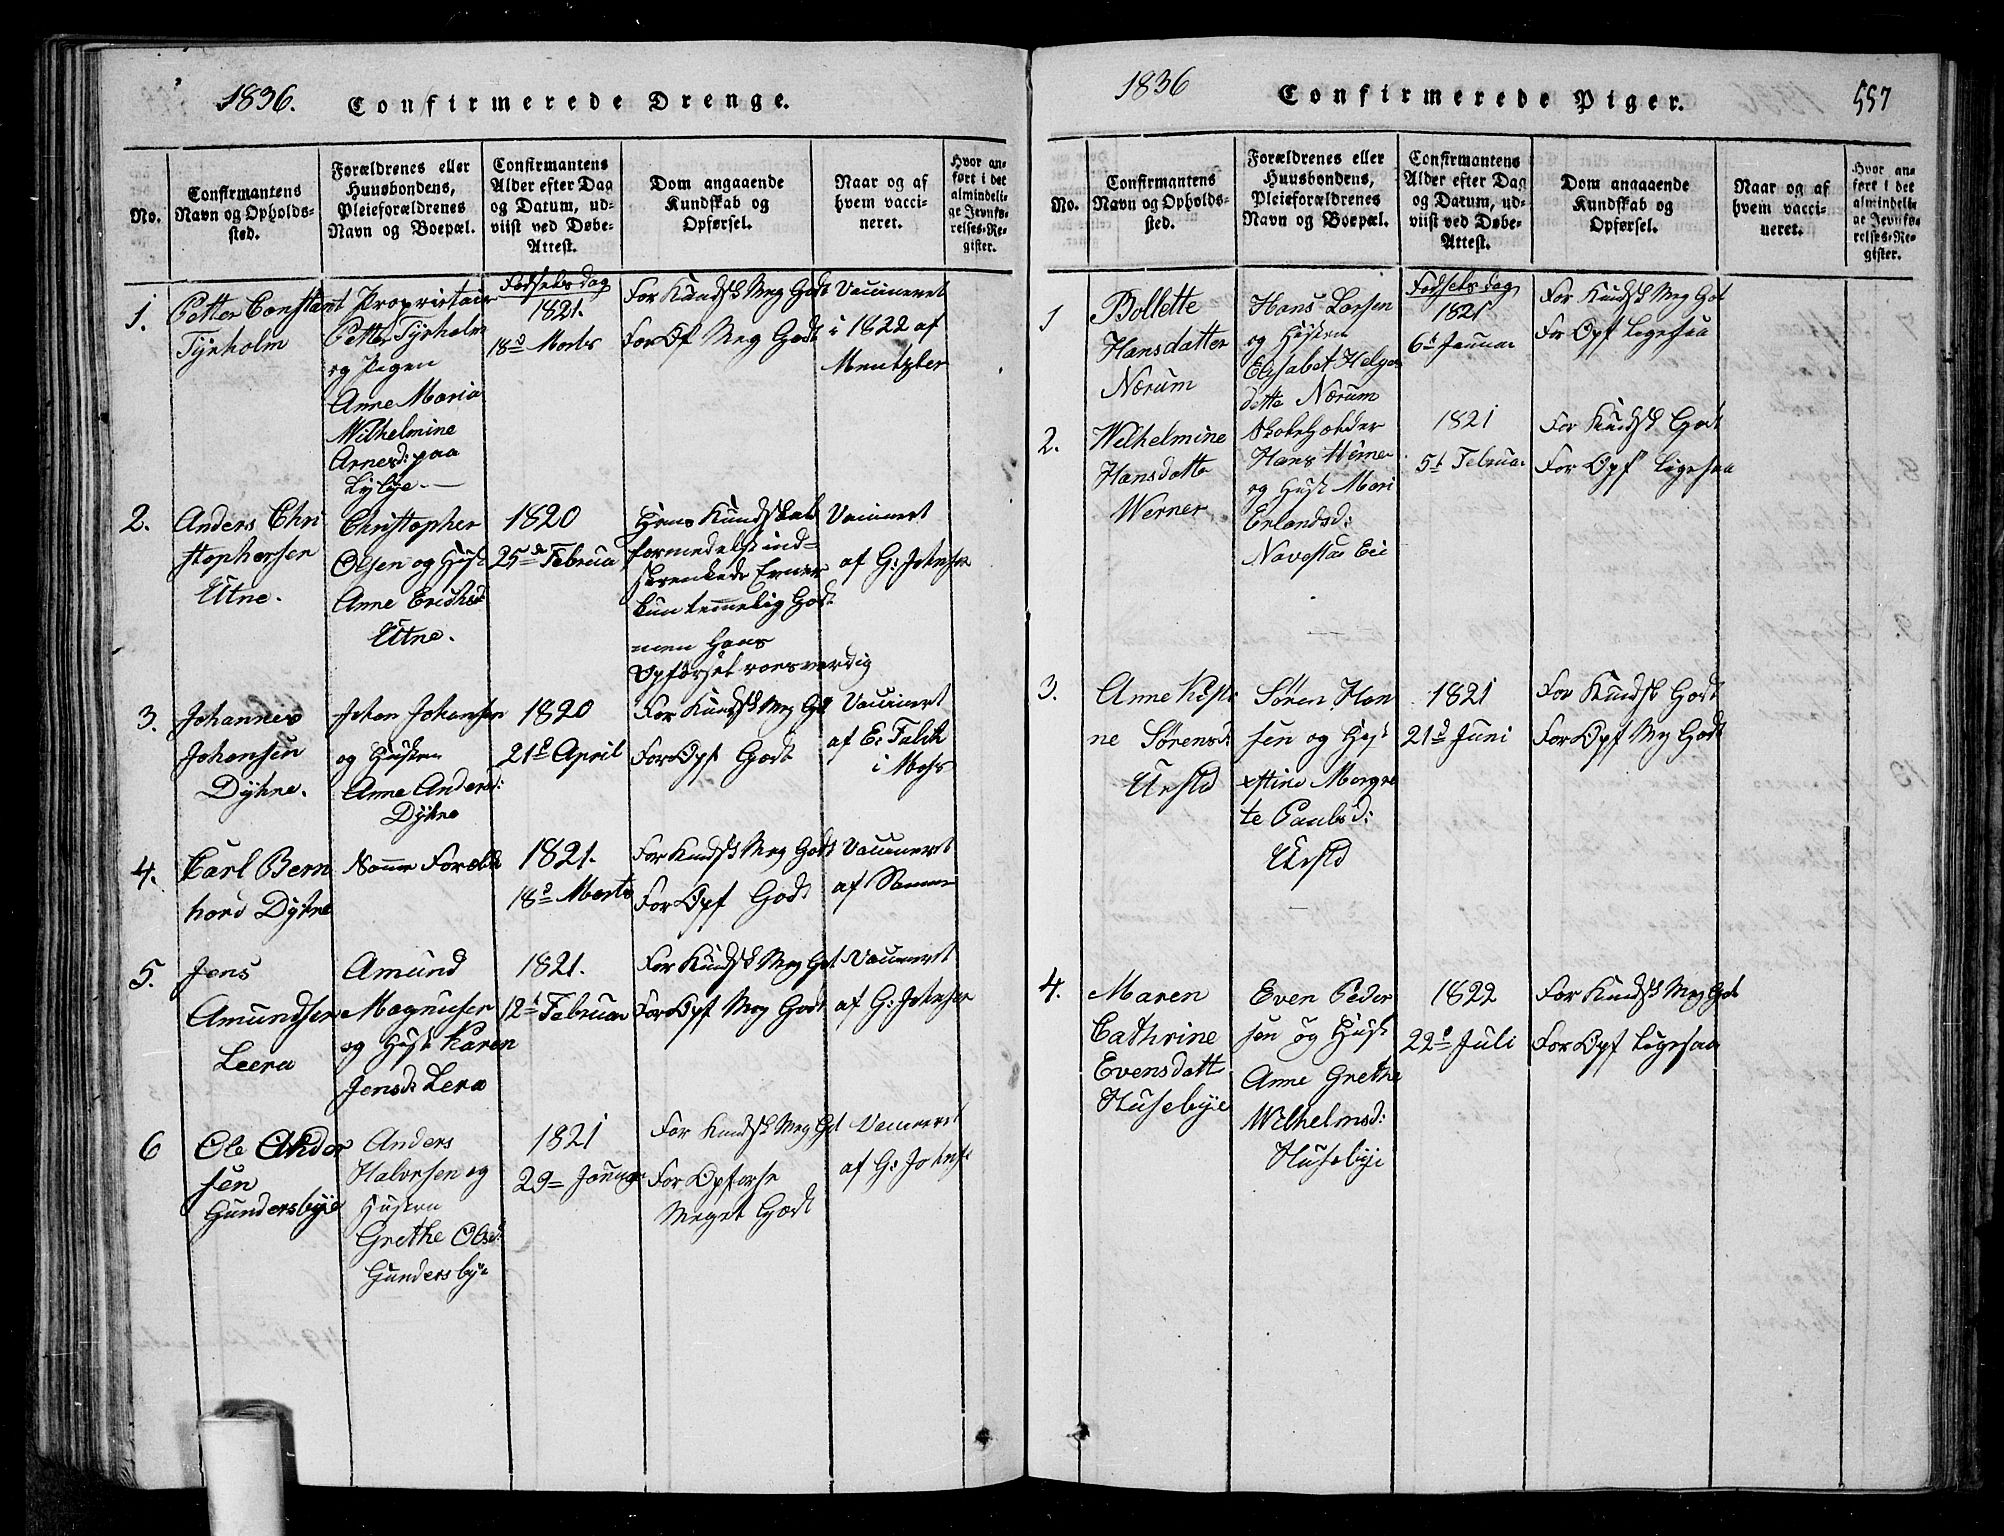 1836. Confirmerede Drenge.
No.
Confirmantens
Navn og Opholds-
sted.
Forældrenes eller
Huusbondens,
Pleieforældrenes
Navn og Boepæl.
Confirmantens
Alder efter Dag
og Datum, ud-
viist ved Døbe-
Attest.
Dom angaaende
Kundskab og
Opførsel.
Naar og af
hvem vacci-
neret.
Hvor an-
ført i det
almindeli-
ge Jevnfø-
relses-Re-
gister.
1.
Petter Constant
Tyrholm
Proprietair
Petter Tyrholm
og Pigen
Anne Maria
Wilhelmine
Arnesd: paa
Lybye.
Fødselsdag
1821.
18d Marts
For Kundsk Meg Godt
For Opf Meg Godt
Vaccineret
i 1822 af
Mentzler
2.
Anders Chri
stophersen
Utne.
Christopher
Olsen og Hust
Anne Erichsd
Utne.
1820
25de Februa
Hans Kundskab
formedelst ind-
skrenkede Evner
kun temmelig Godt
men Hans
Opførsel roesværdig
Vaccinert
af G: Johnsen
3.
Johannes
Johansen
Dyhne.
Johan Johansen
og Hustru
Anne Andersd:
Dyhne
1820
21d April
For Kundsk Meg Gdt
For Opf Godt
Vaccineret
af E: Falck
i Moss
4.
Carl Bern
hard Dyhne
Samme Foreldr
1821.
18d Marts
For Kundsk Meg Godt
For Opf Godt
Vaccineret
af Samme
5.
Jens
Amundsen
Leera
Amund
Magnusen
og Hust Karen
Jensd: Lera
1821.
12t Februar
For Kundsk Meg Gdt
For Opf Meg Godt
Vaccineret
af G: Johnsen
6
Ole Ander
sen
Gundersbye
Anders
Halvorsen og
Hustru
Grethe Olsd:
Gundersbye
1821
29 Januar
For Kundsk Meg Gdt
For Opførse
Meget Godt
Vaccineret
af G: Johnse
1836 Confirmerede Piger. 557
No.
Confirmantens
Navn og Opholds-
sted.
Forældrenes eller
Huusbondens,
Pleieforældrenes
Navn og Boepæl.
Confirmantens
Alder efter Dag
og Datum, ud-
viist ved Døbe-
Attest.
Dom angaaende
Kundskab og
Opførsel.
Naar og af
hvem vacci-
neret.
Hvor an-
ført i det
almindeli-
ge Jevnfø-
relses-Re-
gister.
1
Bollette
Hansdatter
Nærum
Hans Larsen
og Hustru
Elisabet Helges
datte Nærum
Fødselsdag
1821
6t Januar
For Kundsk Meg Got
For Opf Ligesaa
2.
Wilhelmine
Hansdatte
Werner
Skoleholder
Hans
og Hust Mari
Erlandsd:
Navestad Eie
1821
5t Februar
For Kundsk Godt
For Opf Ligesaa
3.
Anne Kisti
ne Sørensd:
Urstd
Søren Han
sen og Hust
Kstine Margre
te Paulsd:
Urstd
1821
21d Juni
For Kundsk Godt
For Opf Mg Godt
4.
Maren
Cathrine
Evensdatt
Husebye
Even Peder
sen og Hust
Anne Grethe
Wilhelmsd:
Husebye
1822
22d Juli
For Kundsk Meg Godt
For Opf Ligesaa